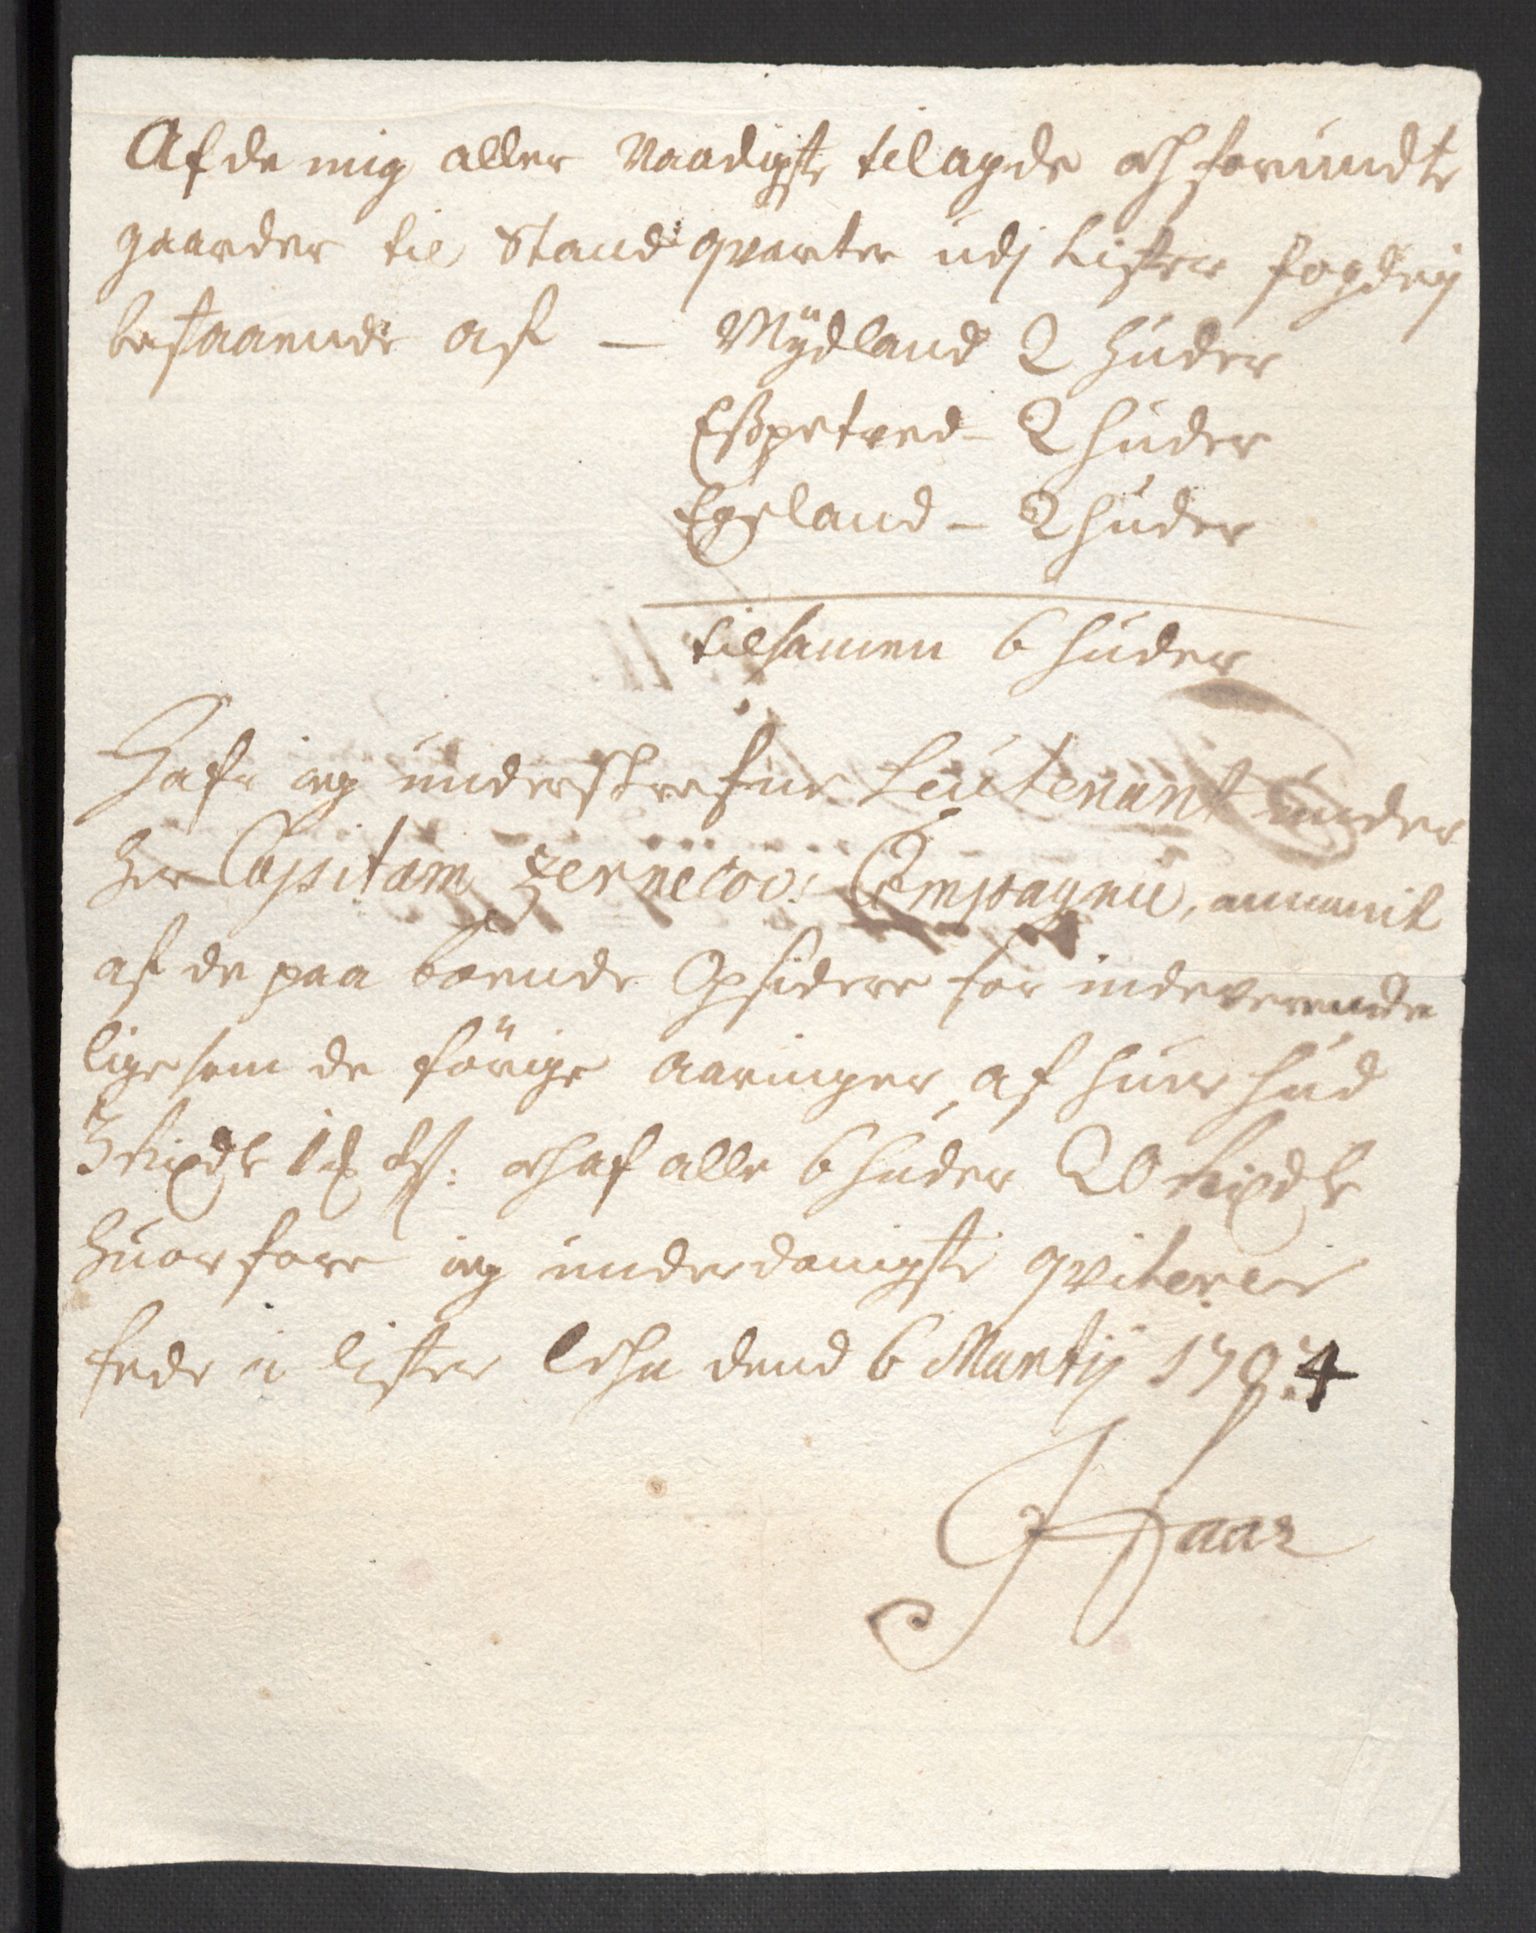 Af de mig aller Naadigste tilagde och forundte
gaarder til Stand qvarter udj Lister fogderj
bestaaende af — Mÿdland 2 huder
Eßpetved – 2 huder
Egeland – 2 huder
tilsamen 6 huder
Hafr ieg underskrefne Leutenant under
Her Capitain Compagnie, annamit
af de paa boende Opsidere for indeverende
lige som de förige aaringer, af huer hud
3 Rixdlr och af alle 6 huder 20 Rixdlr
huorfore ieg underdanigste qviterer
fede i Lister Lehn dend 6 Martij 1704
Haar